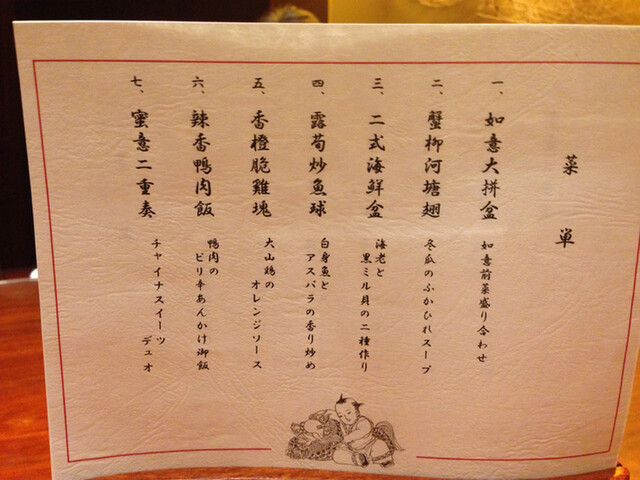 菜単
一、如意大拼盆
如意前菜盛り合わせ
二、蟹柳河塘翅
冬瓜のふかひれスープ
三、二式海鮮盆
海老と
黒ミル貝の二種作り
四、露荀炒魚球
白身魚と
アスパラの香り炒め
五、香橙脆雞塊
大山鶏の
オレンジソース
六、辣香鴨肉飯
鴨肉の
ピリ辛あんかけ御飯
七、蜜意二重奏
チャイナスイーツ
デュオ